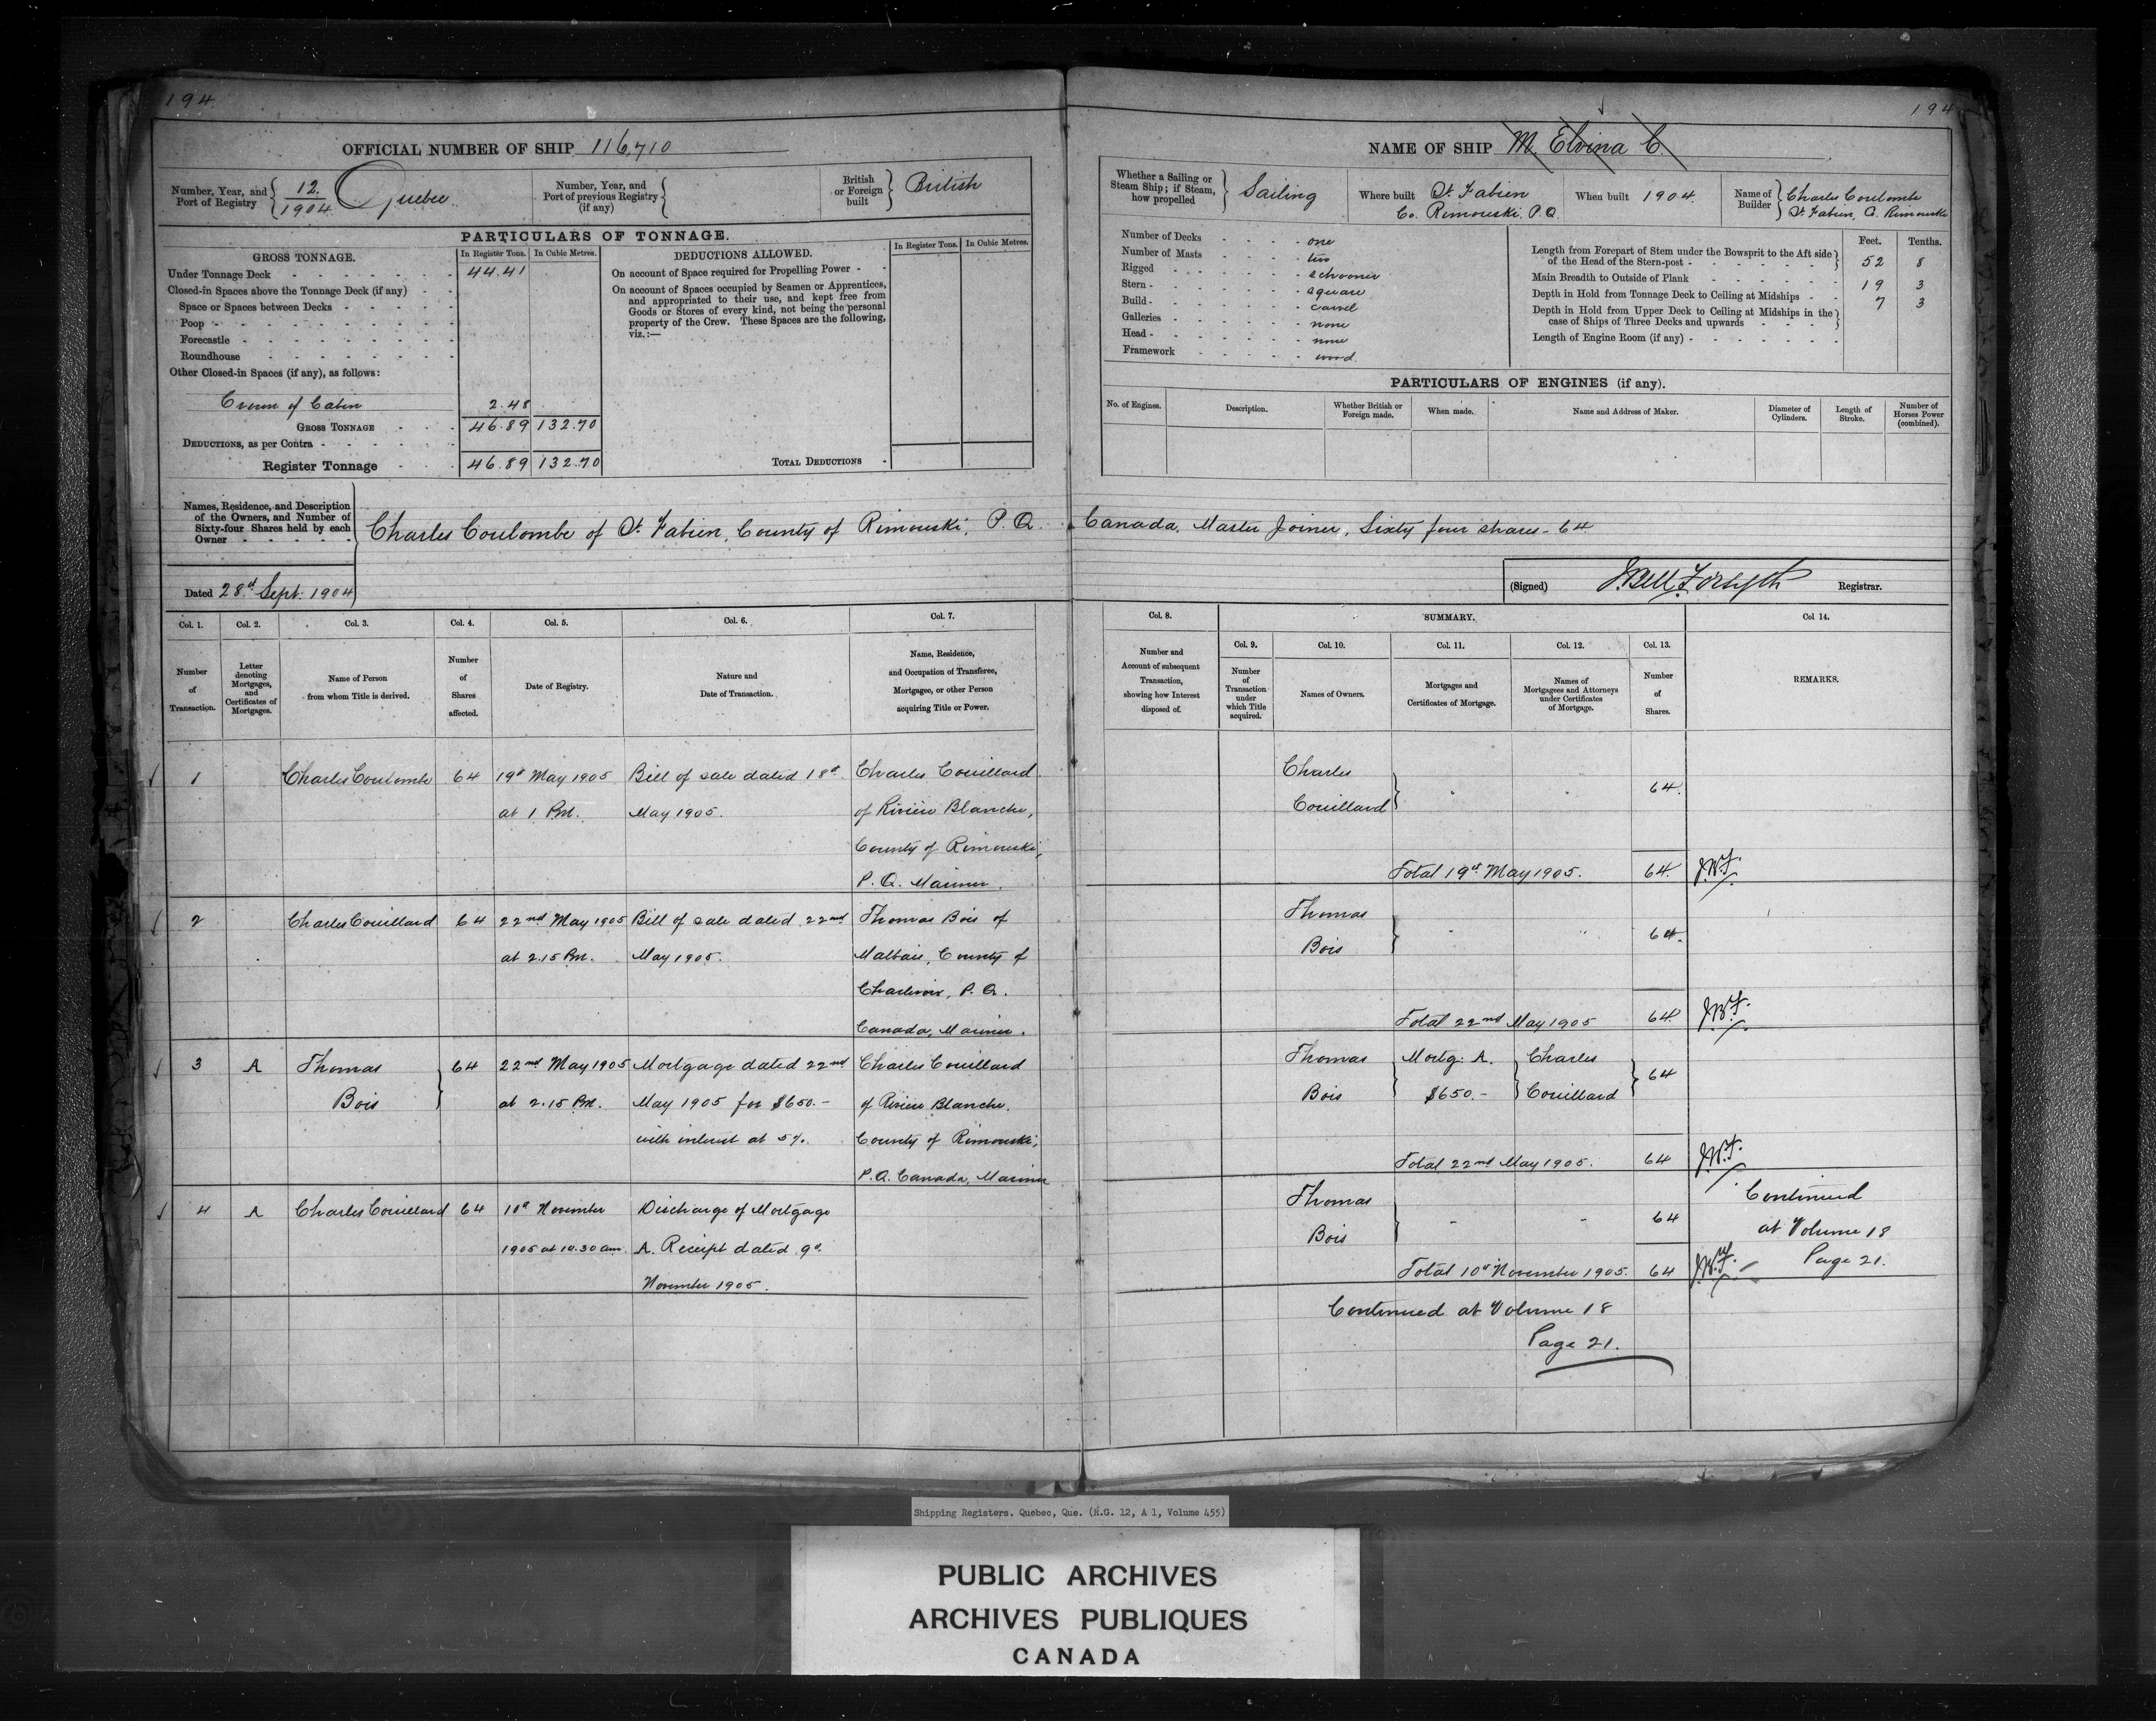 194
OFFICIAL NUMBER OF SHIP 116,710
Number, Year, and Port of Registry 12/1904 Quebec
Number, Year, and Port of previous Registry (if any)
British or Foreign built British
PARTICULARS OF TONNAGE.
GROSS TONNAGE.
In Register Tons. In Cubic Metres.
Under Tonnage Deck - 44.41
Closed-in Spaces above the Tonnage Deck (if any) -
Space or Spaces between Decks -
Poop -
Forecastle -
Roundhouse -
Other Closed-in Spaces (if any), as follows:
Crown of Cabin 2.48
GROSS TONNAGE - 46.89 132.70
DEDUCTIONS, as per Contra -
Register Tonnage - 46.89 132.70
DEDUCTIONS ALLOWED.
In Register Tons. In Cubic Metres.
On account of Space required for Propelling Power -
On account of Spaces occupied by Seamen or Apprentices,
and appropriated to their use, and kept free from
Goods or Stores of every kind, not being the personal
property of the Crew. These Spaces are the following,
viz.:—
TOTAL DEDUCTIONS -
Names, Residence, and Description
of the Owners, and Number of
Sixty-four Shares held by each
Owner -
Charles Coulombe of St. Fabien, County of Rimouski, P.Q. Canada, Master Joiner, Sixty four shares - 64
Dated 28th Sept. 1904
194
NAME OF SHIP M. Elvina C.
Whether a Sailing or Steam Ship; if Steam, how propelled Sailing
Where built St. Fabien
Co. Rimouski P.Q.
When built 1904.
Name of Builder Charles Coulombe
St Fabien, C. Rimouski
Number of Decks - one
Number of Masts - two
Rigged - schooner
Stern - square
Build - carvel
Galleries - none
Head - none
Framework - wood.
Feet. Tenths.
Length from Forepart of Stem under the Bowsprit to the Aft side
of the Head of the Stern-post - 52 8
Main Breadth to Outside of Plank 19 3
Depth in Hold from Tonnage Deck to Ceiling at Midships - 7 3
Depth in Hold from Upper Deck to Ceiling at Midships in the
case of Ships of Three Decks and upwards
Length of Engine Room (if any) -
PARTICULARS OF ENGINES (if any).
No. of Engines.
Description.
Whether British or Foreign made.
When made.
Name and Address of Maker.
Diameter of Cylinders.
Length of Stroke.
Number of Horses Power (combined).
(Signed) J. Bell Forsyth Registrar.
Col. 1. Col. 2. Col. 3. Col. 4. Col. 5. Col. 6. Col. 7.
Number of Transaction.
Letter denoting Mortgages, and Certificates of Mortgages.
Name of Person from whom Title is derived.
Number of Shares affected.
Date of Registry.
Nature and Date of Transaction.
Name, Residence, and Occupation of Transferee, Mortgagee, or other Person acquiring Title or Power.
Col. 8. SUMMARY. Col 14.
Col. 9. Col. 10. Col. 11. Col. 12. Col. 13.
Number and Account of subsequent Transaction, showing how Interest disposed of.
Number of Transaction under which Title acquired.
Names of Owners.
Mortgages and Certificates of Mortgage.
Names of Mortgagees and Attorneys under Certificates of Mortgage.
Number of Shares.
REMARKS.
1 Charles Coulombe 64 19th May 1905 Bill of sale dated 18th Charles Couillard
at 1 P.M. May 1905. of Rivière Blanche,
County of Rimouski,
P.Q. Mariner.
Charles
Couillard 64
Total 19th May 1905. 64. J.B.F.
2 Charles Couillard 64 22nd May 1905 Bill of sale dated 22nd Thomas Bois of
at 2.15 P.M. May 1905. Malbaie, County of
Charlevoix, P.Q.
Canada, Mariner.
Thomas
Bois 64.
Total 22nd May 1905 64. J.B.F.
3 A Thomas 64 22nd May 1905 Mortgage dated 22nd Charles Couillard
Bois at 2.15 P.M. May 1905 for $650.- of Rivière Blanche,
with interest at 5%. County of Rimouski,
P.Q. Canada, Mariner
Thomas Mortg: A. Charles
Bois $650.- Couillard 64
Total 22nd May 1905. 64 J.B.F.
4 A Charles Couillard 64 10th November Discharge of Mortgage
1905 at 10.30 am. A. Receipt dated 9th
November 1905.
Thomas
Bois 64
Total 10th November 1905. 64 J.B.F.
Continued
at Volume 18
Page 21.
Continued at Volume 18
Page 21.
Shipping Registers. Quebec, Que. (R.G. 12, A 1, Volume 455)
PUBLIC ARCHIVES
ARCHIVES PUBLIQUES
CANADA